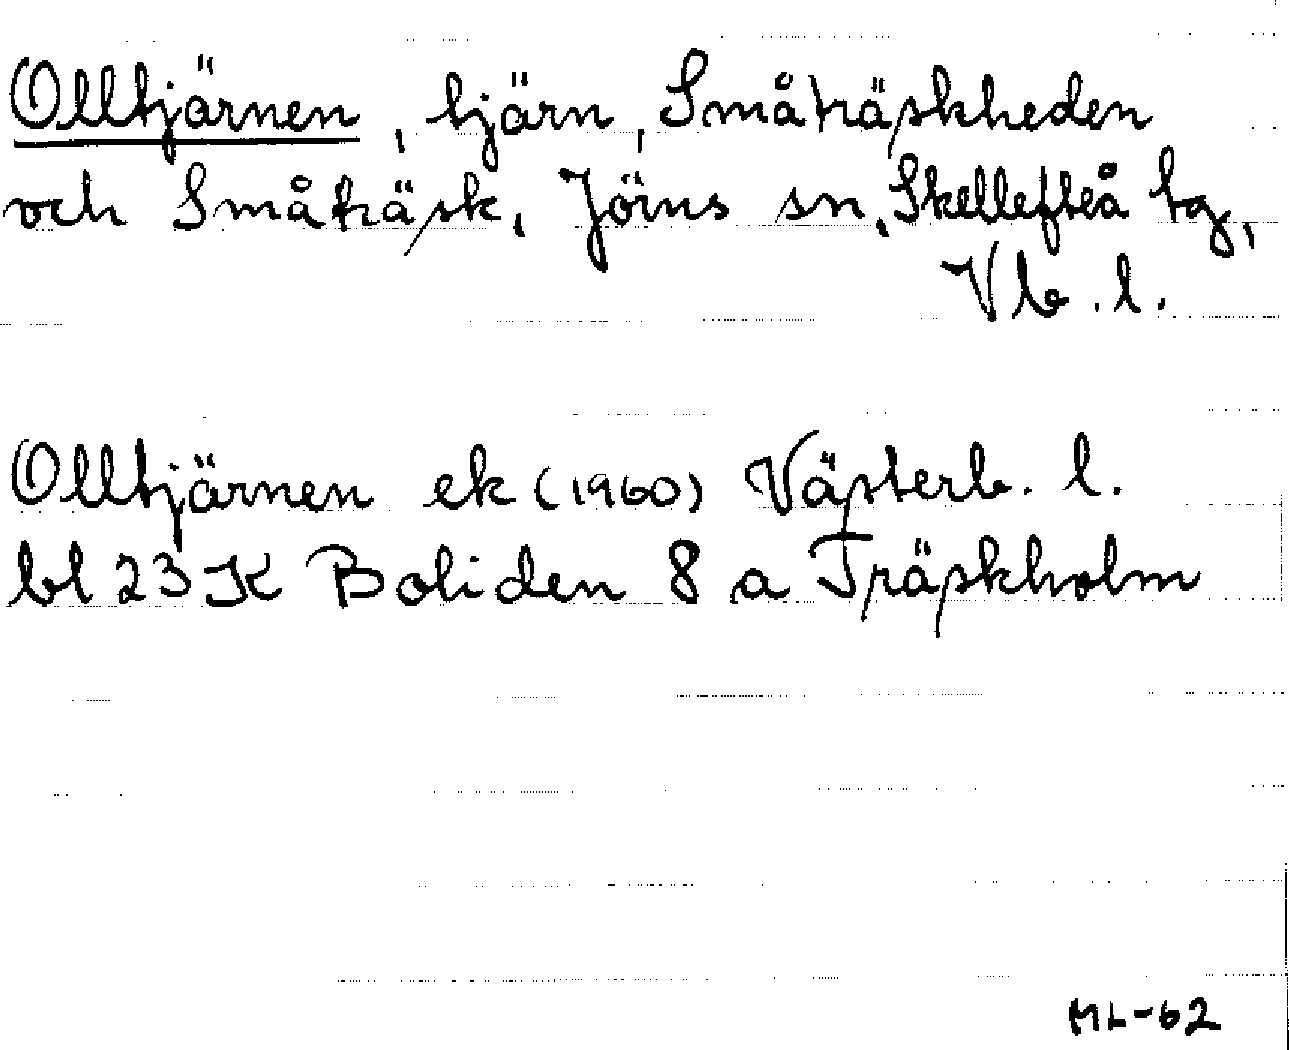 Olltjärnen, tjärn, Småträskheden
och Småträsk, Jörns sn, Skellefteå tg,
Vb. l.
Olltjärnen ek (1960) Västerb. l.
bl 23 K Boliden 8 a Träskholm
ML-62